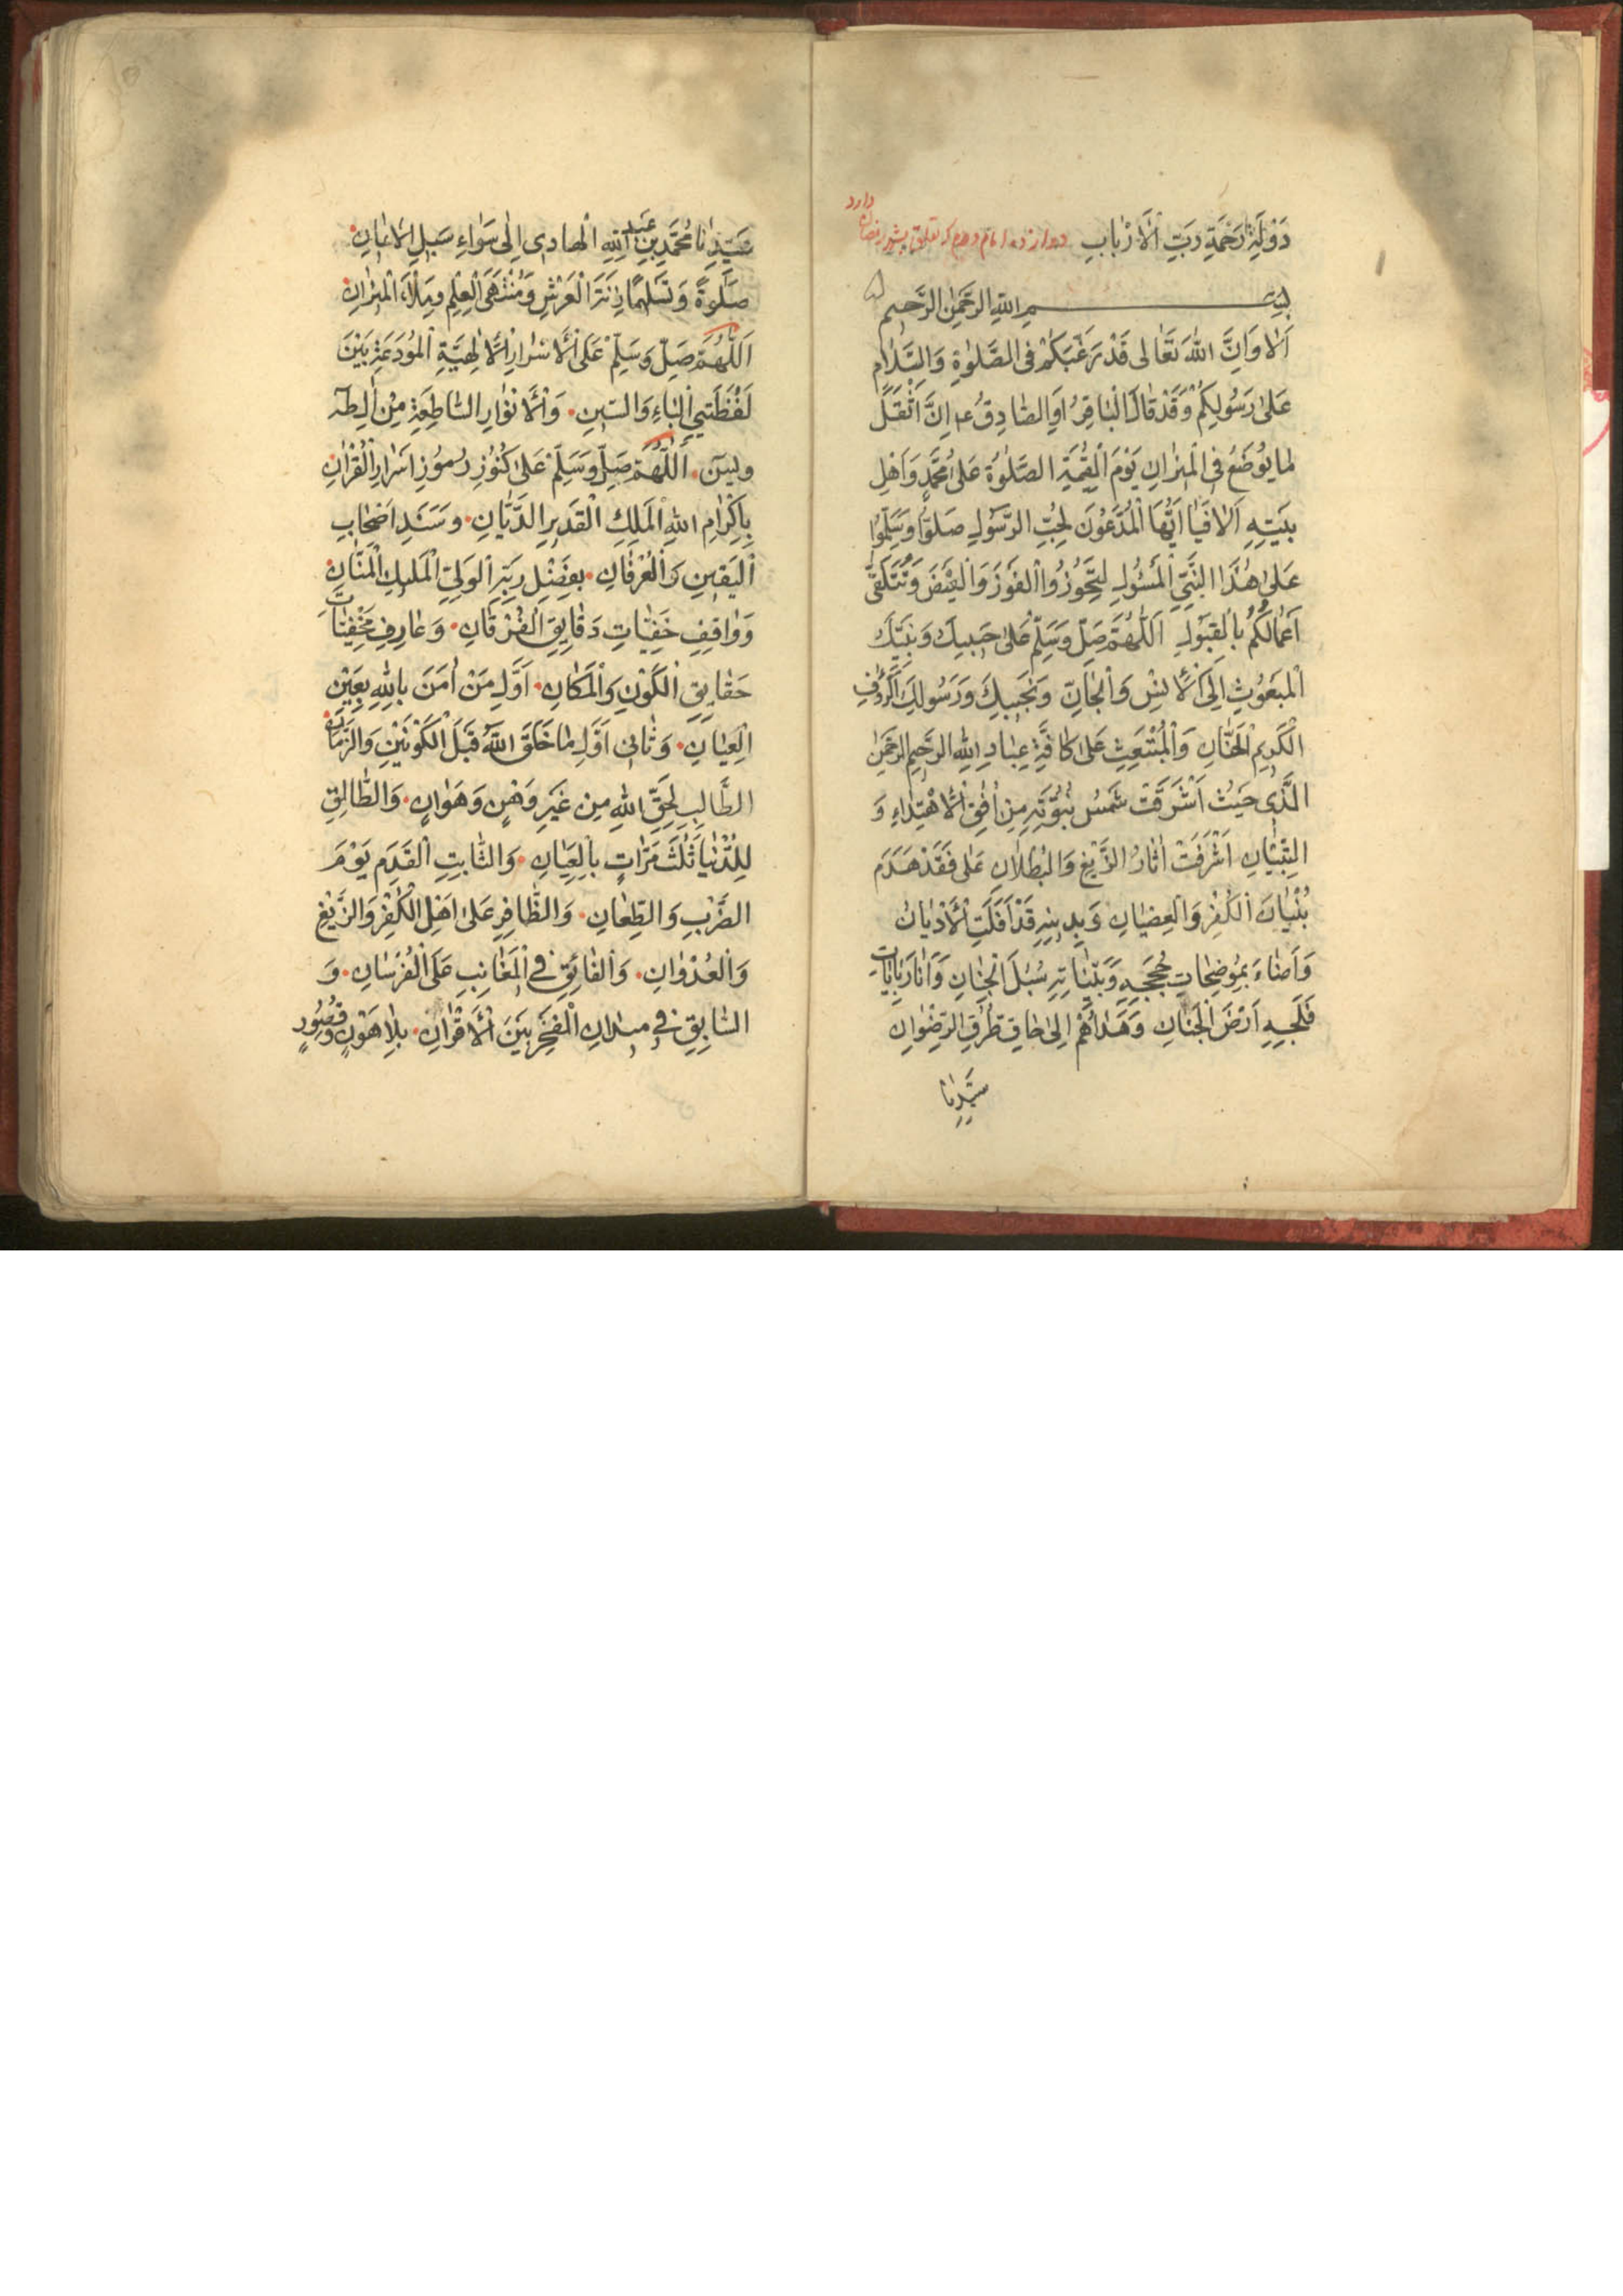 دَوْلَةِ رَحْمَةِ رَبِّ الْأَرْبابِ دوازده امام دهم که تعلق بشهر رمضان دارد
بِسْمِ اللهِ الرَّحْمٰنِ الرَّحيمِ
اَلا وَاِنَّ اللهَ تَعٰالى قَدْ رَغَّبَكُمْ فِى الصَّلٰوةِ وَالسَّلٰامِ
عَلىٰ رَسُولِكُمْ وَقَدْ قٰالَ الْبٰاقِرُ اَوِ الصّٰادِقُ ع اِنَّ اَثْقَلَ
مٰا يُوضَعُ فِى الْميزٰانِ يَوْمَ الْقِيٰمَةِ الصَّلٰوةُ عَلىٰ مُحَمَّدٍ وَاَهْلِ
بَيْتِهِ اَلا فَيٰا اَيُّهَا الْمُدَّعُونَ لِحُبِّ الرَّسُولِ صَلُّوا وَسَلِّمُوا
عَلىٰ هٰذَا النَّبِىِّ الْمَسْئُولِ لِتَحُوزُوا الْفَوْزَ وَالْفَيْضَ وَتُتَلَقّىٰ
اَعْمٰالُكُمْ بِالْقَبُولِ اَللّٰهُمَّ صَلِّ وَسَلِّمْ عَلىٰ حَبيبِكَ وَنَبِيِّكَ
الْمَبْعُوثِ اِلَى الْأِنْسِ وَالْجٰانِّ وَنَجيبِكَ وَرَسُولِكَ الرَّؤُفِ
الْكَريمِ الْحَنّٰانِ وَالْمُنْبَعِثِ عَلىٰ كٰافَّةِ عِبٰادِ اللهِ الرَّحيمِ الرَّحْمٰنِ
الَّذى حَيْثُ اَشْرَقَتْ شَمْسُ نُبُوَّتِهِ مِنْ اُفُقِ الْأِهْتِدٰاءِ وَ
التِّبْيٰانِ اَشْرَفَتْ اٰثٰارُ الزَّيْغِ وَالْبُطْلٰانِ عَلىٰ فَقَدْ هَدَمَ
بُنْيٰانَ الْكُفْرِ وَالْعِصْيٰانِ وَبِدينِهِ قَدْ اَفَلَتِ الْأَدْيٰانُ
وَاَضٰاءَ بِمُوضِحٰاتِ حُجَجِهِ وَبَيِّنٰاتِهِ سُبُلَ الْجِنٰانِ وَاَنٰارَ بِاٰيٰاتِ
فَلَجِهِ اَرْضَ الْجَنٰانِ وَهَدٰاهُمْ اِلىٰ حٰاقِ طُرُقِ الرِّضْوٰانِ
سَيِّدِنٰا
سَيِّدِنٰا مُحَمَّدِ بْنِ عَبْدِ اللهِ الْهٰادى اِلىٰ سَوٰاءِ سَبيلِ الْأيمٰانِ
صَلٰوةً وَتَسْليمًا زِنَةَ الْعَرْشِ وَمُنْتَهَى الْعِلْمِ وَمِلْأَ الْميزٰانِ
اَللّٰهُمَّ صَلِّ وَسَلِّمْ عَلَى الْأَسْرٰارِ الْأِلٰهِيَّةِ الْمُودَعَةِ بَيْنَ
لَفْظَتَىِ الْبٰاءِ وَالسّينِ. وَالْأَنْوٰارِ السّٰاطِعَةِ مِنْ اٰلِ طٰه
وَيٰسٓ. اَللّٰهُمَّ صَلِّ وَسَلِّمْ عَلىٰ كُنُوزِ رُمُوزِ اَسْرٰارِ الْقُرْاٰنِ
بِاِكْرٰامِ اللهِ الْمَلِكِ الْقَديرِ الدَّيّٰانِ. وَسَنَدِ اَصْحٰابِ
الْيَقينِ وَالْعِرْفٰانِ. بِفَضْلِ رَبِّهِ الْوَلِىِّ الْمَليكِ الْمَنّٰانِ.
وَوٰاقِفِ خَفِيّٰاتِ دَقٰايِقِ الْفُرْقٰانِ. وَعٰارِفِ مَخْفِيّٰاتِ
حَقٰايِقِ الْكَوْنِ وَالْمَكٰانِ. اَوَّلِ مَنْ اٰمَنَ بِاللهِ بِعَيْنِ
الْعِيٰانِ. وَثٰانى اَوَّلِ مٰا خَلَقَ اللهُ قَبْلَ الْكَوْنَيْنِ وَالزَّمٰانِ.
الطّٰالِبِ لِحَقِّ اللهِ مِنْ غَيْرِ وَهْنٍ وَهَوٰانٍ. وَالطّٰالِقِ
لِلدُّنْيٰا ثَلٰثَ مَرّٰاتٍ بِالْعِيٰانِ. وَالثّٰابِتِ الْقَدَمِ يَوْمَ
الضَّرْبِ وَالطِّعٰانِ. وَالظّٰافِرِ عَلىٰ اَهْلِ الْكُفْرِ وَالزَّيْغِ
وَالْعُدْوٰانِ. وَالْفٰائِقِ فِى الْمَغٰانِبِ عَلَى الْفُرْسٰانِ. وَ
السّٰابِقِ فى مِيدٰانِ الْمَفْخَرِ بَيْنَ الْأَقْرٰانِ. بِلٰا هَوْنٍ وَقُصُورٍ